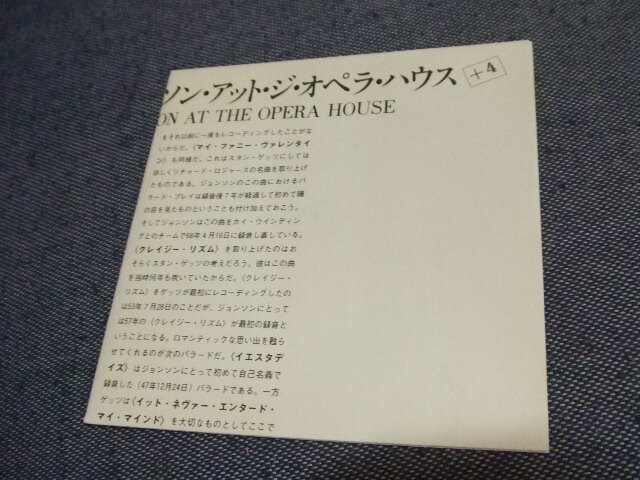 ソン・アット・ジ・オペラ・ハウス +4
ON AT THE OPERA HOUSE
をそれ以前に一度もレコーディングしたことがな
いからだ。〈マイ・ファニー・ヴァレンタイ
ン〉も同様だ。これはスタン・ゲッツにしては
珍しくリチャード・ロジャースの名曲を取り上げ
たものである。ジョンソンのこの曲におけるバ
ラード・プレイは録音後7年が経過して初めて陽
の目を見たものということも付け加えておこう。
そしてジョンソンはこの曲をカイ・ウインディン
グとのチームで68年4月16日に録音し直している。
〈クレイジー・リズム〉を取り上げたのはお
そらくスタン・ゲッツの考えだろう。彼はこの曲
を当時何年も吹いていたからだ。〈クレイジー・
リズム〉をゲッツが最初にレコーディングしたの
は53年7月28日のことだが、ジョンソンにとって
は57年の〈クレイジー・リズム〉が最初の録音と
いうことになる。ロマンティックな思い出を甦ら
せてくれるのが次のバラードだ。〈イエスタデ
イズ〉はジョンソンにとって初めて自己名義で
録音した（47年12月24日）バラードである。一方
ゲッツは〈イット・ネヴァー・エンタード・
マイ・マインド〉を大切なものとしてここで